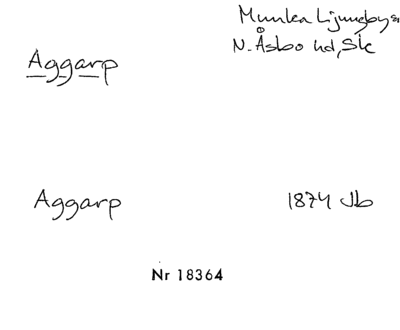 Munka Ljungby sn
N. Åsbo hd, Sk
Aggarp
Aggarp 1874 Jb
Nr 18364